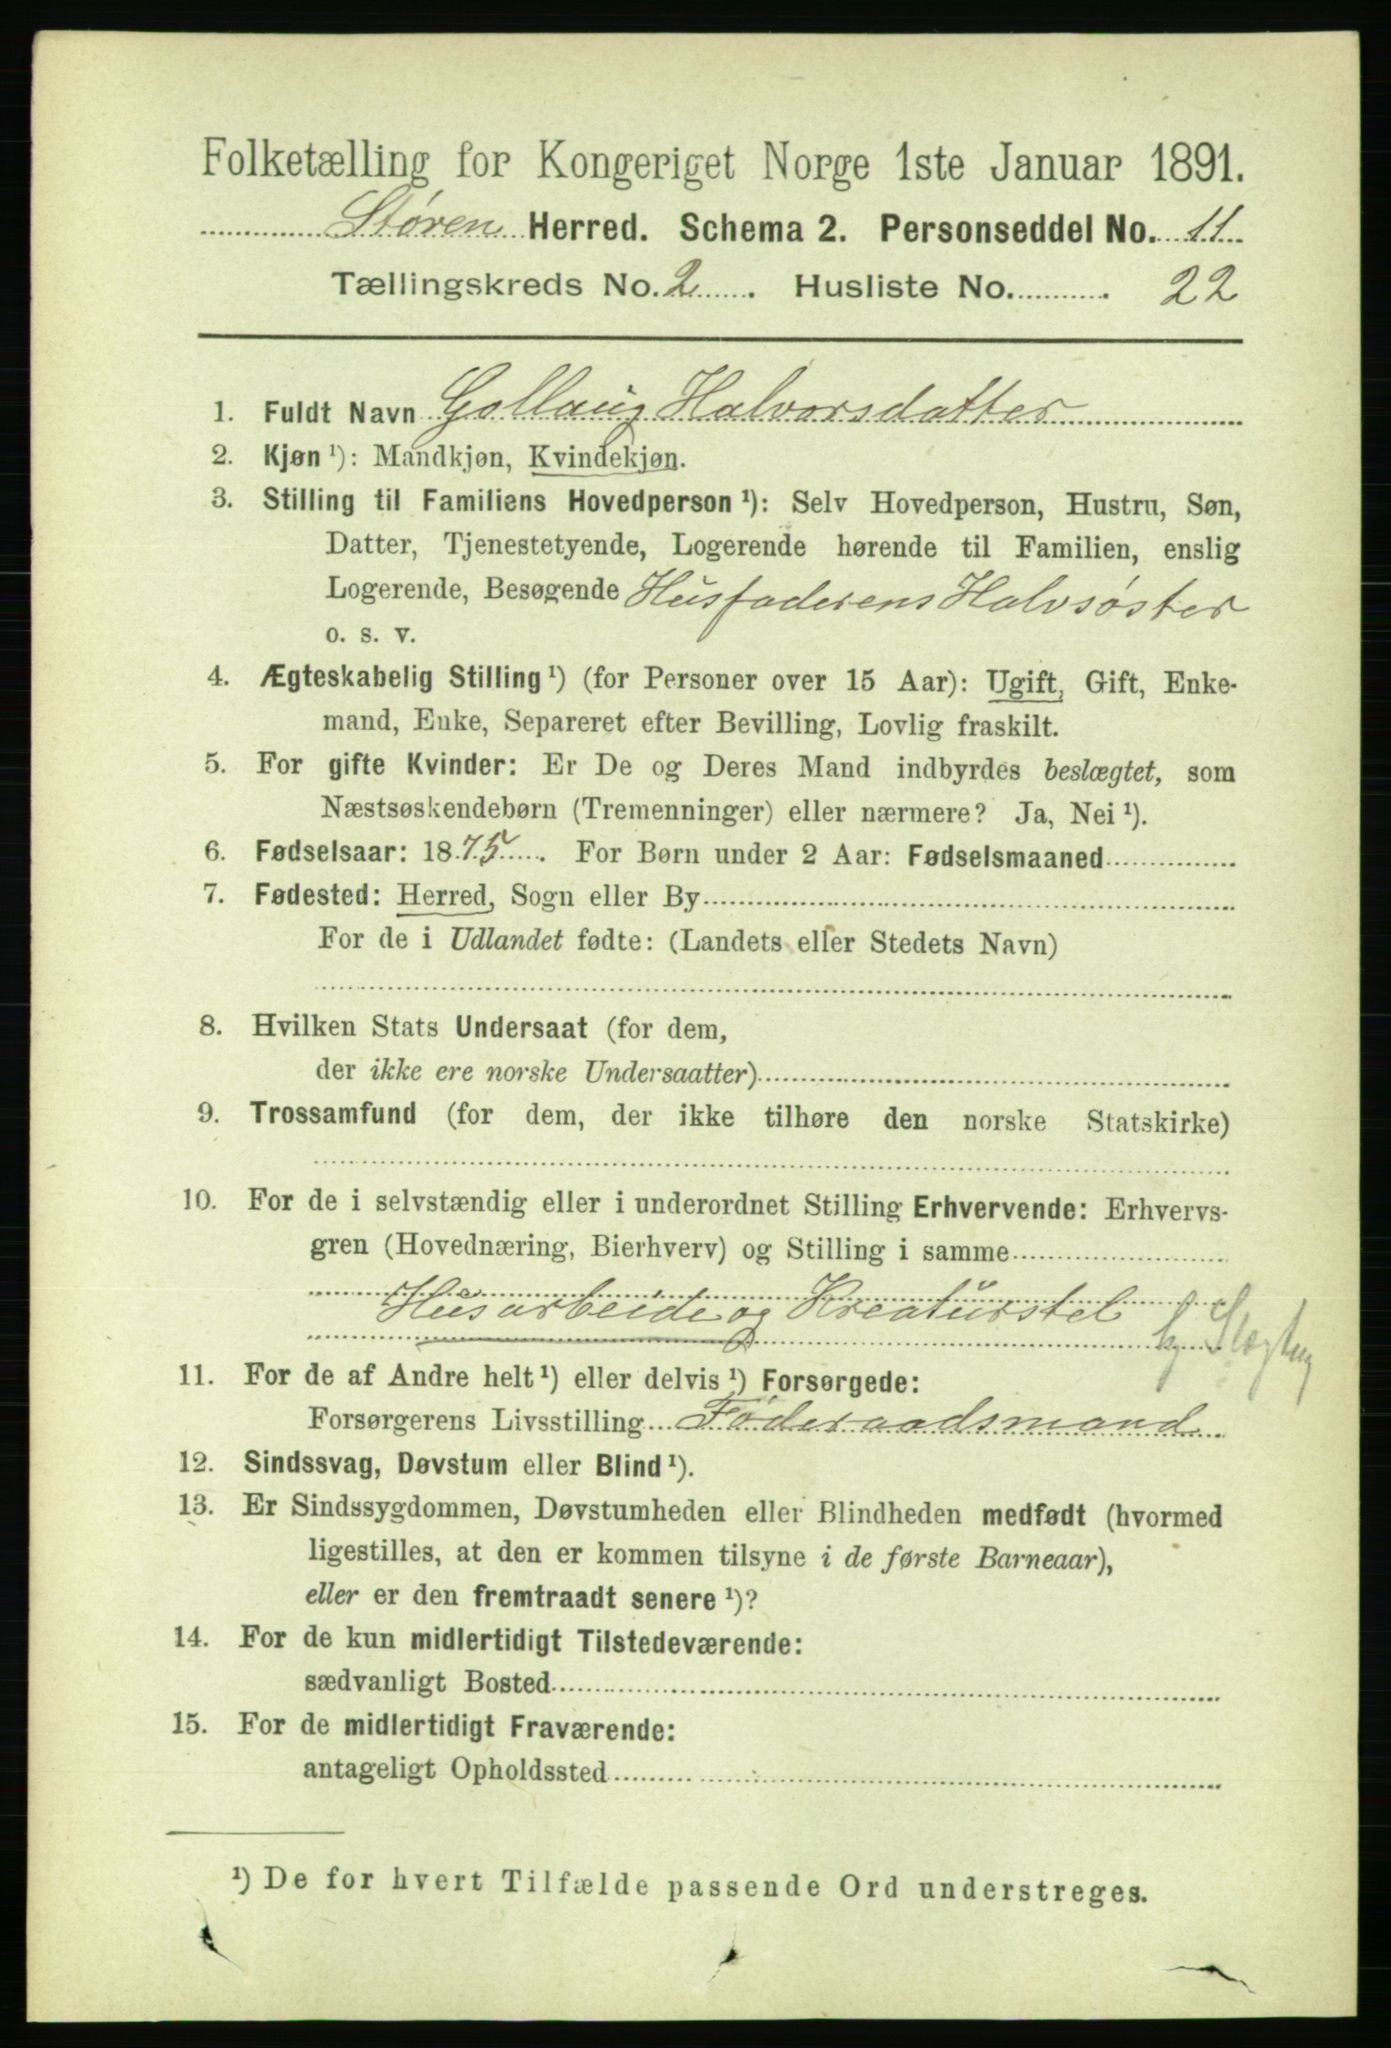 Folketælling for Kongeriget Norge 1ste Januar 1891.
Støren Herred. Schema 2. Personseddel No. 11
Tællingskreds No. 2. Husliste No. 22
1. Fuldt Navn Gollaug Halvorsdatter
2. Kjøn ¹): Mandkjøn, Kvindekjøn.
3. Stilling til Familiens Hovedperson ¹): Selv Hovedperson, Hustru, Søn,
Datter, Tjenestetyende, Logerende hørende til Familien, enslig
Logerende, Besøgende Husfaderens Halvsøster
o. s. v.
4. Ægteskabelig Stilling ¹) (for Personer over 15 Aar): Ugift, Gift, Enke-
mand, Enke, Separeret efter Bevilling, Lovlig fraskilt.
5. For gifte Kvinder: Er De og Deres Mand indbyrdes beslægtet, som
Næstsøskendebørn (Tremenninger) eller nærmere? Ja, Nei ¹).
6. Fødselsaar: 1875. For Børn under 2 Aar: Fødselsmaaned
7. Fødested: Herred, Sogn eller By
For de i Udlandet fødte: (Landets eller Stedets Navn)
8. Hvilken Stats Undersaat (for dem,
der ikke ere norske Undersaatter)
9. Trossamfund (for dem, der ikke tilhøre den norske Statskirke)
10. For de i selvstændig eller i underordnet Stilling Erhvervende: Erhvervs-
gren (Hovednæring, Bierhverv) og Stilling i samme
Husarbeide og Kreaturstel
hj Slægtng
11. For de af Andre helt ¹) eller delvis ¹) Forsørgede:
Forsørgerens Livsstilling Føderaadsmand
12. Sindssvag, Døvstum eller Blind ¹).
13. Er Sindssygdommen, Døvstumheden eller Blindheden medfødt (hvormed
ligestilles, at den er kommen tilsyne i de første Barneaar),
eller er den fremtraadt senere ¹)?
14. For de kun midlertidigt Tilstedeværende:
sædvanligt Bosted
15. For de midlertidigt Fraværende:
antageligt Opholdssted
¹) De for hvert Tilfælde passende Ord understreges.